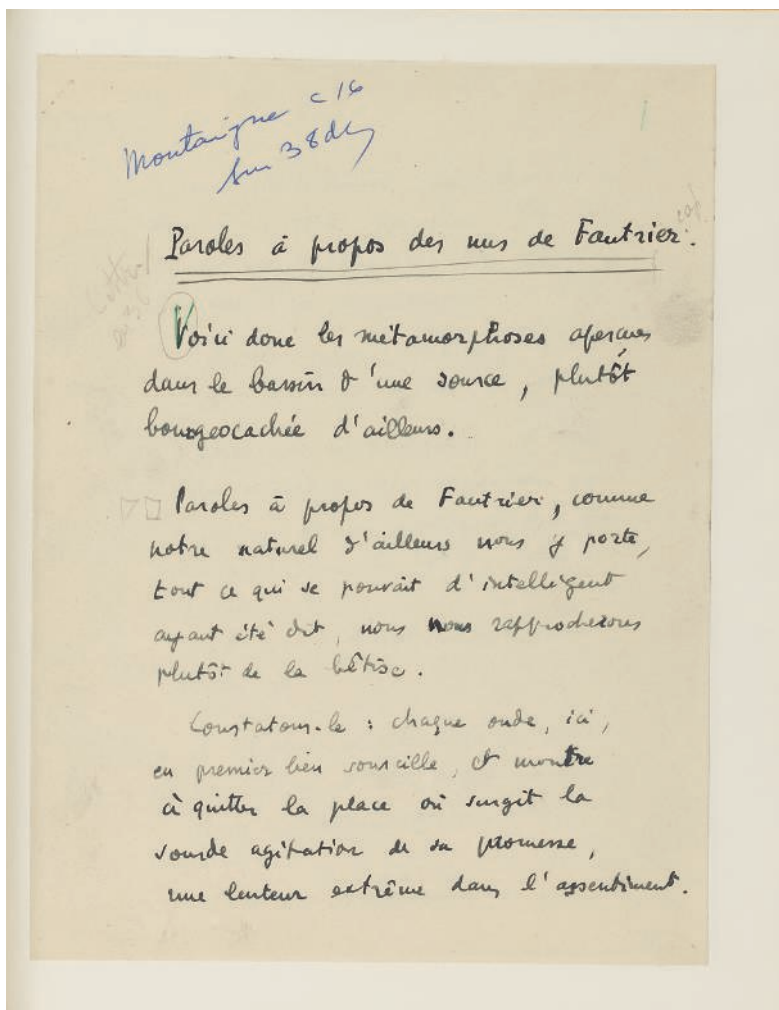 Montaigne c 16
sur 38 dc
Paroles à propos des nus de Fautrier.
Voici donc les métamorphoses aperçues
dans le bassin d'une source, plutôt
bourgeocachée d'ailleurs.
Paroles à propos de Fautrier, comme
notre naturel d'ailleurs nous y porte,
tout ce qui se pouvait d'intelligent
ayant été dit, nous nous rapprocherons
plutôt de la bêtise.
Constatons-le : chaque onde, ici,
en premier lieu sourcille, et montre
à quitter la place où surgit la
sourde agitation de sa promesse,
une lenteur extrême dans l'assentiment.